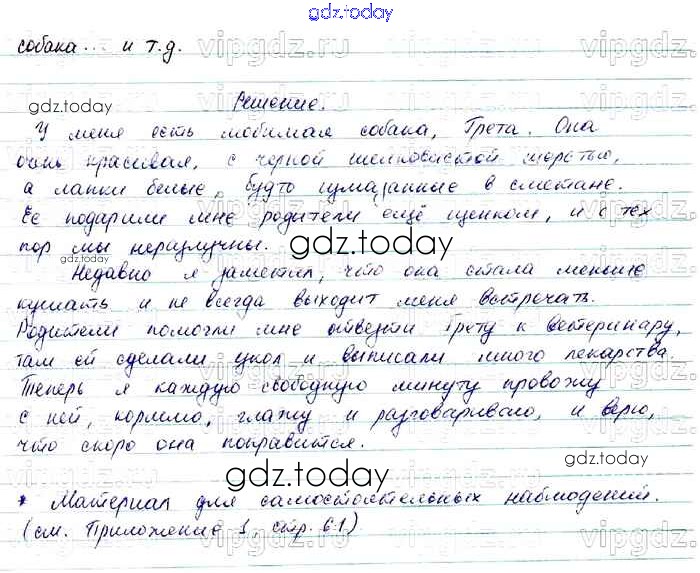 gdz.today
собака... и т.д.
Решение.
У меня есть любимая собака, Грета. Она
очень красивая, с черной шелковистой шерстью,
а лапки белые, будто измазанные в сметане.
Её подарили мне родители ещё щенком, и с тех
пор мы неразлучны.
Недавно я заметил, что она стала меньше
кушать и не всегда выходит меня встречать.
Родители помогли мне отвезти Грету к ветеринару,
там ей сделали укол и выписали много лекарства.
Теперь я каждую свободную минуту провожу
с ней, кормлю, глажу и разговариваю, и верю,
что скоро она поправится.
* Материал для самостоятельных наблюдений.
(см. Приложение 1, стр. 61)